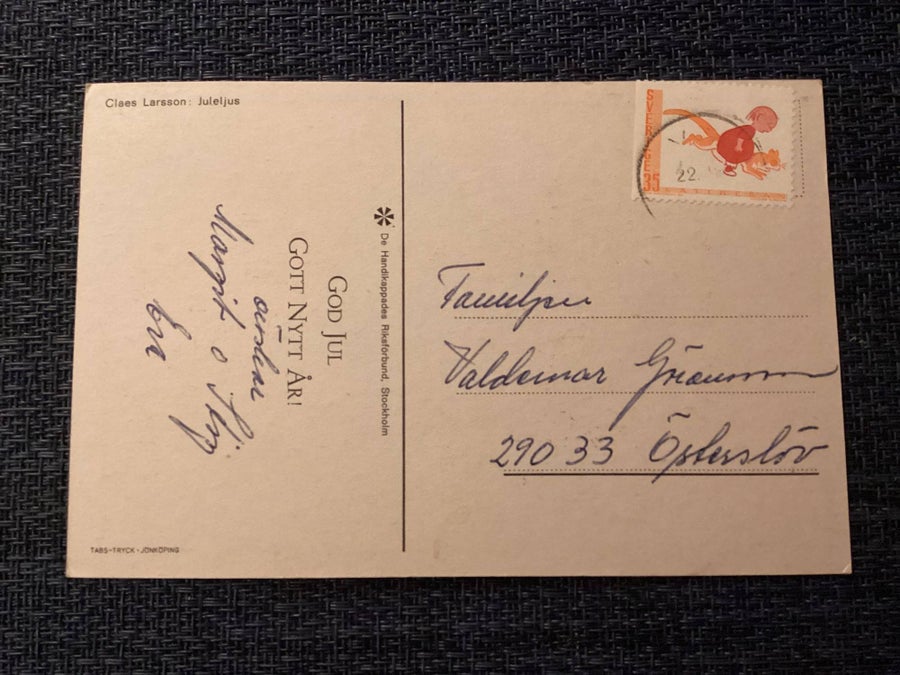 Claes Larsson: Juleljus
GOD JUL
GOTT NYTT ÅR!
önskar
Margit o Stig
Eva
TABS-TRYCK - JÖNKÖPING
De Handikappades Riksförbund, Stockholm
SVERIGE 35
22.
Familjen
Valdemar
290 33 Österslöv